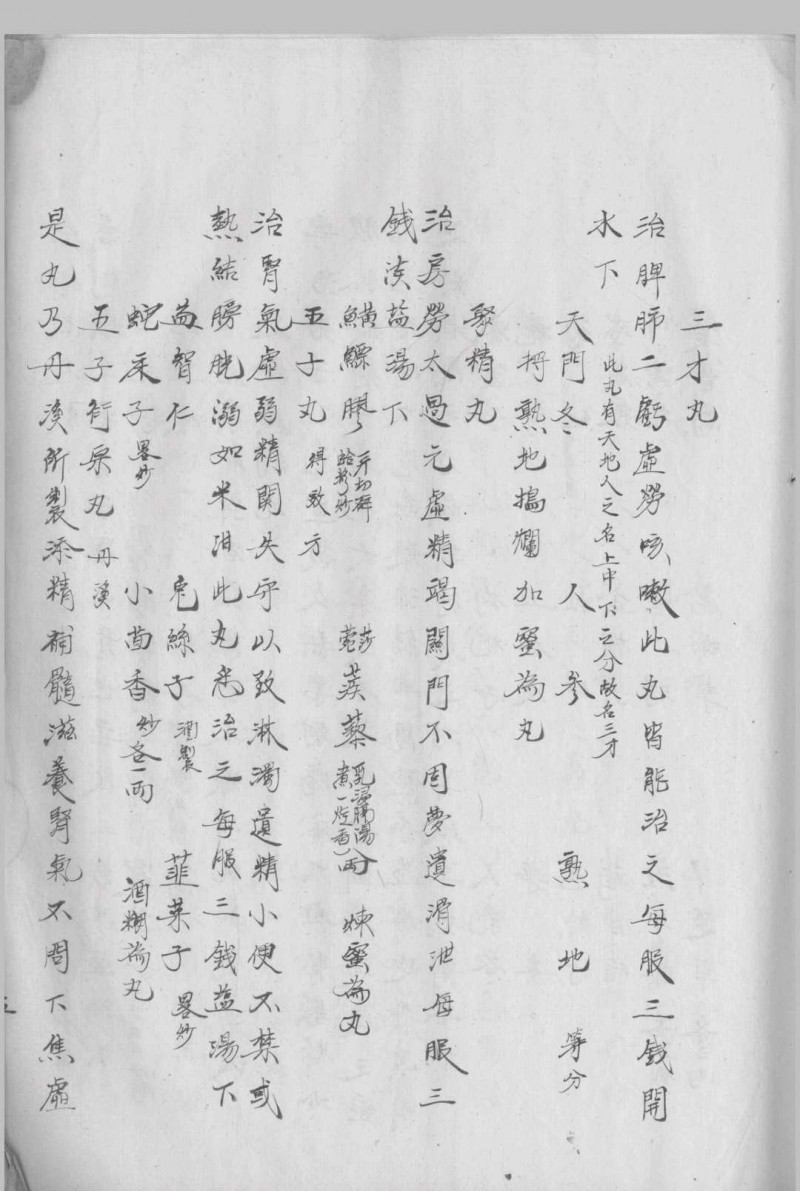 三才丸
治脾肺二虧虛勞咳嗽此丸皆能治之每服三錢開
水下 此丸有天地人之名上中下之分故名三才
天門冬 人參 熟地 等分
將熟地搗爛加蜜為丸
聚精丸
治房勞太過元虛精竭關門不固夢遺滑泄每服三
錢淡益湯下
鱑鰾膠 切碎 蛤粉炒 莎蒺藜 乳浸 煮一炷香 兩 煉蜜為丸
五子丸 得效方
治腎氣虛弱精關失守以致淋濁遺精小便不禁或
熱結膀胱溺如米泔此丸悉治之每服三錢益湯下
益智仁 兔絲子 酒製 韮菜子 畧炒
蛇床子 畧炒 小茴香 炒各一兩 酒糊為丸
五子衍宗丸 丹溪
是丸乃丹溪所製添精補髓滋養腎氣不問下焦虛